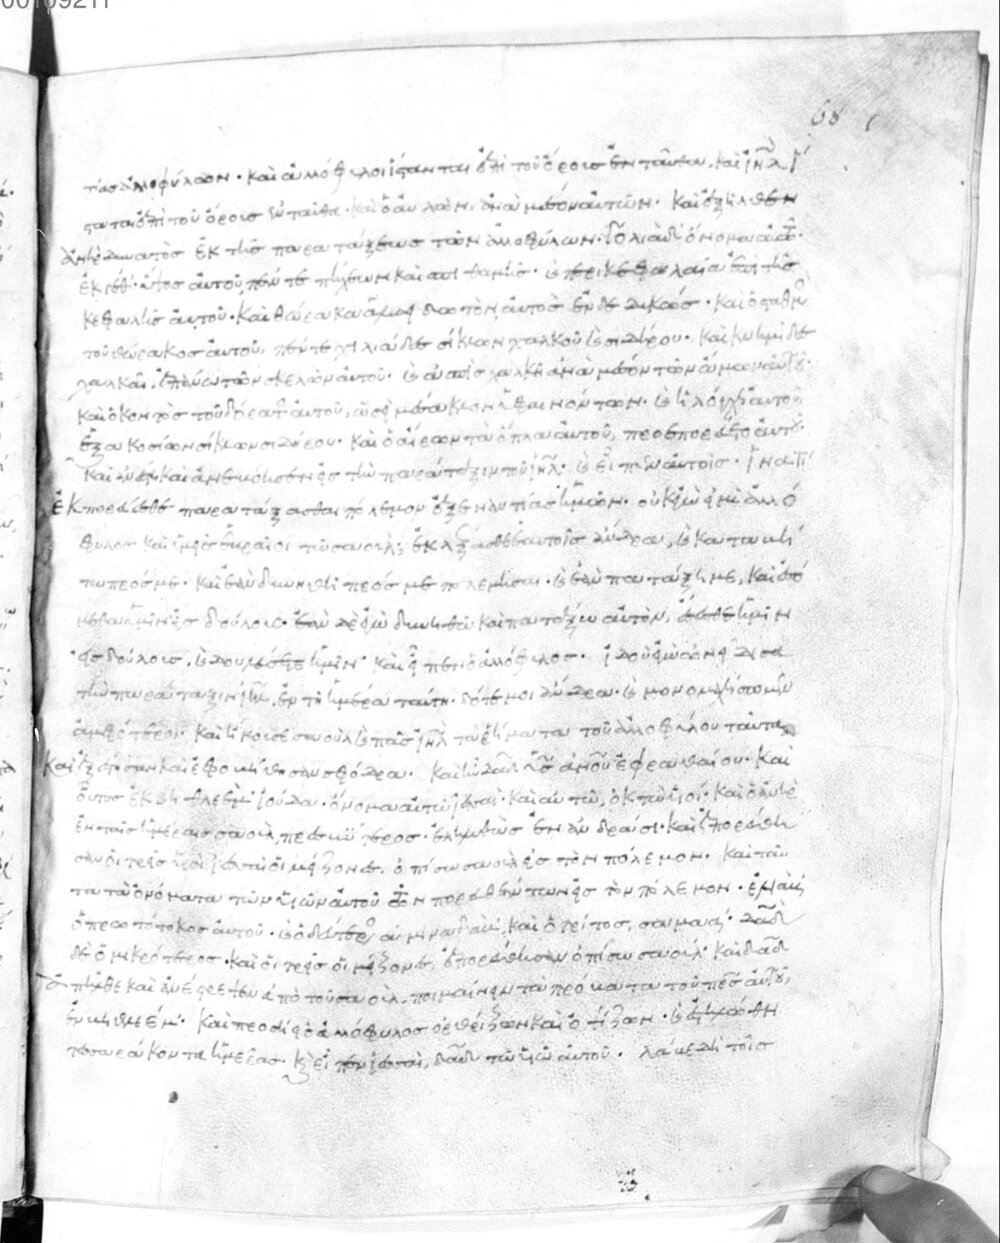 00109211
68
τίας ἀλλοφύλων. καὶ ἀλλόφυλοι ἵστανται ἐπὶ τοῦ ὄρους ἐνταῦθα, καὶ ἰηλ ἵ
σταται ἐπὶ τοῦ ὄρους ἐνταῦθα. καὶ ὁ αὐλὼν, ἀνὰ μέσον αὐτῶν. καὶ ἐξῆλθεν
ἀνὴρ δυνατὸς ἐκ τῆς παρατάξεως τῶν ἀλλοφύλων. γολιὰδ ὄνομα αὐτῶ.
ἐκ γέθ. ὕψος αὐτοῦ, πέντε πήχεων καὶ σπιθαμῆς. καὶ περικεφαλαία ἐπὶ τῆς
κεφαλῆς αὐτοῦ. καὶ θώρακα ἁλυσιδωτὸν, αὐτὸς ἐνδεδυκώς. καὶ ὁ σταθμὸς
τοῦ θώρακος αὐτοῦ, πέντε χιλιάδες σίκλων χαλκοῦ καὶ σιδήρου. καὶ κνημίδες
χαλκαῖ, ἐπάνω τῶν σκελῶν αὐτοῦ. καὶ ἀσπὶς χαλκῆ ἀνὰ μέσον τῶν ὤμων αὐτοῦ.
καὶ ὁ κοντὸς τοῦ δόρατος αὐτοῦ, ὡσεὶ μέσακλον ὑφαινόντων. καὶ ἡ λόγχη αὐτοῦ,
ἑξακοσίων σίκλων σιδήρου. καὶ ὁ αἴρων τὰ ὅπλα αὐτοῦ, προεπορεύετο αὐτοῦ.
καὶ ἔστη καὶ ἀνεβόησεν εἰς τὴν παράταξιν τοῦ ἰηλ. καὶ εἶπεν αὐτοῖς. ἵνα τί
ἐκπορεύεσθε παρατάξασθαι πόλεμον ἐξεναντίας ἡμῶν. οὐκ ἐγώ εἰμι ἀλλό
φυλος καὶ ὑμεῖς ἑβραῖοι τοῦ σαούλ; ἐκλέξασθε ἑαυτοῖς ἄνδρα, καὶ καταβή
τω πρός με. καὶ ἐὰν δυνηθῆ πρός με πολεμῆσαι. καὶ ἐὰν πατάξη με, καὶ ἐσό
μεθα ὑμῖν εἰς δούλους. ἐὰν δὲ ἐγὼ δυνηθῶ καὶ πατάξω αὐτὸν, ἔσεσθε ἡμῖν
εἰς δούλους, καὶ δουλεύσετε ἡμῖν. καὶ εἶπεν ὁ ἀλλόφυλος. ἰδοὺ ἐγὼ ὠνείδισα
τὴν παράταξιν ἰηλ, ἐν τῆ ἡμέρα ταύτη. δότε μοι ἄνδρα. καὶ μονομαχήσομεν
ἀμφότεροι. καὶ ἤκουσε σαοὺλ καὶ πᾶς ἰηλ τὰ ῥήματα τοῦ ἀλλοφύλου ταῦτα,
καὶ ἐξέστησαν καὶ ἐφοβήθησαν σφόδρα. καὶ ἦν δαδ υἱὸς ἀνοῦ ἐφραθαίου. καὶ
οὗτος ἐκ βηθλεὲμ ἰούδα. ὄνομα αὐτῶ ἰεσσαί. καὶ αὐτῶ, ὀκτὼ υἱοί. καὶ ὁ ἀνὴρ
ἐν ταῖς ἡμέραις σαοὺλ, πρεσβύτερος. ἐληλυθὼς ἐν ἀνδράσι. καὶ ἐπορεύθη
σαν οἱ τρεῖς υἱοὶ ἰεσσαὶ οἱ μείζονες, ὀπίσω σαοὺλ εἰς τὸν πόλεμον. καὶ ταῦ
τα τὰ ὀνόματα τῶν υἱῶν αὐτοῦ τῶν πορευθέντων εἰς τὸν πόλεμον. ἐλιὰβ
ὁ πρωτότοκος αὐτοῦ. καὶ ὁ δεύτερος αμιναδάβ, καὶ ὁ τρίτος, σαμαά. δαδ
δὲ ὁ μικρότερος. καὶ οἱ τρεῖς οἱ μείζονες, ἐπορεύθησαν ὀπίσω σαούλ. καὶ δαδ
ἀπῆλθε καὶ ἀνέστρεψεν ἀπὸ τοῦ σαοὺλ, ποιμαίνειν τὰ πρόβατα τοῦ πρς αὐτοῦ,
ἐν βηθλεέμ. καὶ προσῆγεν ὁ ἀλλόφυλος ὀρθρίζων καὶ ὀψίζων. καὶ ἐστηλώθη
τεσσαράκοντα ἡμέρας. καὶ εἶπεν ἰεσσαὶ, δαδ τῶ υἱῶ αὐτοῦ. λάβε δὴ τοῖς